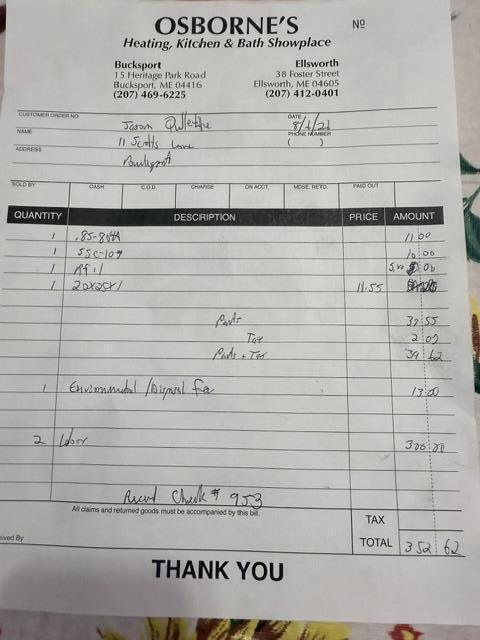 OSBORNE'S Nº
Heating, Kitchen & Bath Showplace
Bucksport
15 Heritage Park Road
Bucksport, ME 04416
(207) 469-6225
Ellsworth
38 Foster Street
Ellsworth, ME 04605
(207) 412-0401
CUSTOMER ORDER NO.
DATE
NAME Jason
PHONE NUMBER
( )
ADDRESS 11 Scotts Lane
SOLD BY CASH C.O.D. CHARGE ON ACCT. MDSE. RETD. PAID OUT
QUANTITY DESCRIPTION PRICE AMOUNT
1 11 00
1 10 00
1 5.00
1 20x25x1 11.55
Parts 37 55
Tax 2 07
Parts + Tax 39 62
1 Environmental / Disposal fee 13 00
2 labor 300 00
Check # 953
All claims and returned goods must be accompanied by this bill.
TAX
eived By
TOTAL 352 62
THANK YOU